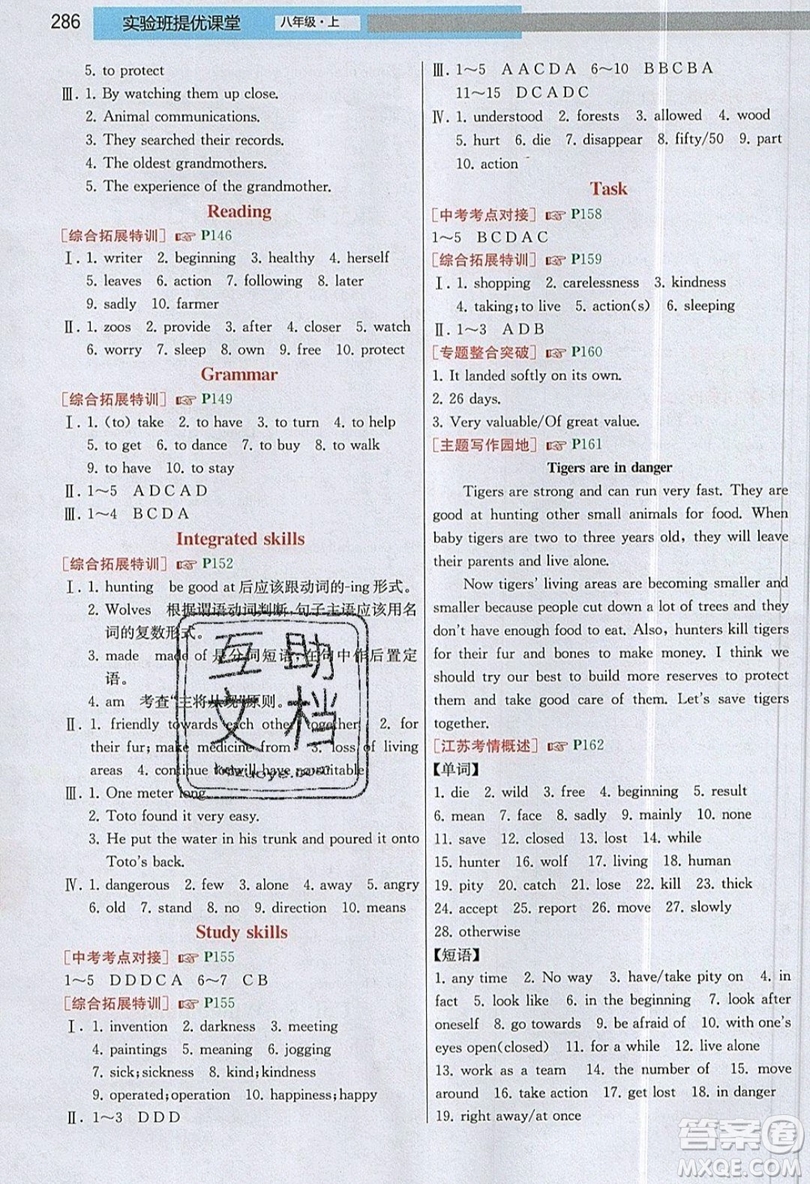 286 实验班提优课堂 八年级·上
5. to protect
Ⅲ. 1. By watching them up close.
2. Animal communications.
3. They searched their records.
4. The oldest grandmothers.
5. The experience of the grandmother.
Reading
[综合拓展特训] ☞ P146
Ⅰ. 1. writer 2. beginning 3. healthy 4. herself
5. leaves 6. action 7. following 8. later
9. sadly 10. farmer
Ⅱ. 1. zoos 2. provide 3. after 4. closer 5. watch
6. worry 7. sleep 8. own 9. free 10. protect
Grammar
[综合拓展特训] ☞ P149
Ⅰ. 1. (to) take 2. to have 3. to turn 4. to help
5. to get 6. to dance 7. to buy 8. to walk
9. to have 10. to stay
Ⅱ. 1~5 A D C A D
Ⅲ. 1~4 B C D A
Integrated skills
[综合拓展特训] ☞ P152
Ⅰ. 1. hunting be good at 后应该跟动词的-ing 形式。
2. Wolves 根据谓语动词判断,句子主语应该用名
词的复数形式。
3. made made of 是分词短语,在句中作后置定
语。
4. am 考查“主将从现”原则。
Ⅱ. 1. friendly towards each other, together 2. for
their fur; make medicine from 3. loss of living
areas 4. continue to; will have none; table
Ⅲ. 1. One meter long.
2. Toto found it very easy.
3. He put the water in his trunk and poured it onto
Toto's back.
Ⅳ. 1. dangerous 2. few 3. alone 4. away 5. angry
6. old 7. stand 8. no 9. direction 10. means
Study skills
[中考考点对接] ☞ P155
1~5 D D D C A 6~7 C B
[综合拓展特训] ☞ P155
Ⅰ. 1. invention 2. darkness 3. meeting
4. paintings 5. meaning 6. jogging
7. sick;sickness 8. kind;kindness
9. operated;operation 10. happiness;happy
Ⅱ. 1~3 D D D
Ⅲ. 1~5 A A C D A 6~10 B C A D D
11~15 D C A D C
Ⅳ. 1. understood 2. forests 3. allowed 4. wood
5. hurt 6. die 7. disappear 8. fifty/50 9. part
10. action
Task
[中考考点对接] ☞ P158
1~5 B C D A C
[综合拓展特训] ☞ P159
Ⅰ. 1. shopping 2. carelessness 3. kindness
4. taking;to live 5. action(s) 6. sleeping
Ⅱ. 1~3 A D B
[专题整合突破] ☞ P160
1. It landed softly on its own.
2. 26 days.
3. Very valuable/Of great value.
[主题写作园地] ☞ P161
Tigers are in danger
Tigers are strong and can run very fast. They are
good at hunting other small animals for food. When
baby tigers are two to three years old, they will leave
their parents and live alone.
Now tigers' living areas are becoming smaller and
smaller because people cut down a lot of trees and they
don't have enough food to eat. Also, hunters kill tigers
for their fur and bones to make money. I think we
should try our best to build more reserves to protect
them and take good care of them. Let's save tigers
together.
[江苏考情概述] ☞ P162
【单词】
1. die 2. wild 3. free 4. beginning 5. result
6. mean 7. face 8. sadly 9. mainly 10. none
11. save 12. closed 13. lost 14. while
15. hunter 16. wolf 17. living 18. human
19. pity 20. catch 21. lose 22. illness 23. kill
24. accept 25. report 26. move 27. loss
28. otherwise
【短语】
1. any time 2. No way 3. have/take pity on 4. in
fact 5. look like 6. in the beginning 7. look after
oneself 8. go towards 9. be afraid of 10. with one's
eyes open(closed) 11. for a while 12. live alone
13. work as a team 14. the number of 15. move
around 16. take action 17. and so on 18. in danger
19. right away/at once
互助
文档
hdzuoye.com
答案圈
MXQE.COM